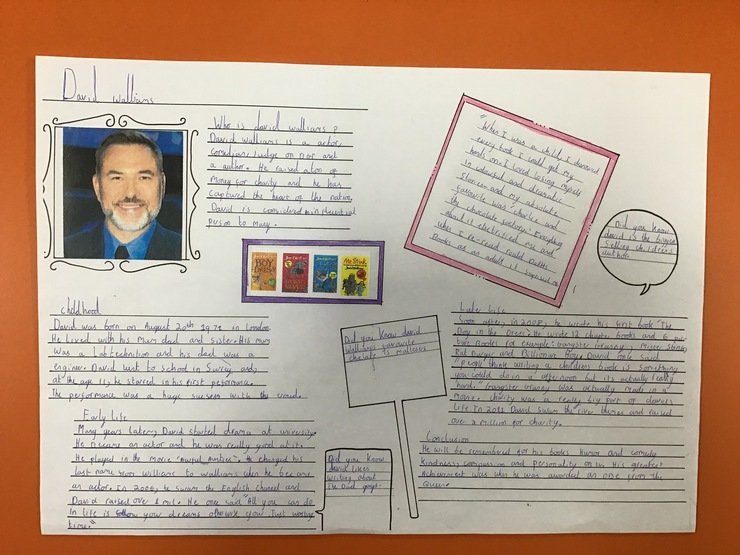 David
Walliams
Who is david walliams?
David walliams is a actor,
Comedian, Judge on
a author. He raised a ton of
Money for charity and he has
captured the heart of the nation.
David is considered
person to many.
"When I was a child, I devoured
every book I could get my
hands on. I loved losing myself
in colourful and dramatic
Stories and my absolute
favourite was 'charlie and
the chocolate factory'. Everything
about it electrified me and
when I re-read Roald Dahl's
Books as an adult it
Did you know
david is the
selling children's
BOY
DRESS
Mr Stink
childhood
David was born on August 20th 1971 in London.
He Lived with his Mum dad and sister. His mum
was a Lab technition and his dad was a
engineer. David went to school in Surrey and
at the age 11, he starred in his first performance.
The performance was a huge success with the crowd.
Early life
Many years later, David started drama at university.
He became an actor and he was really good at it.
He played in the movie He changed his
last name from williams to walliams when he became
an actor. In 2006, he swam the English channel and
David raised over 1 mil. He once said "All you can do
in life is follow you dreams otherwise you Just wasting
time."
Did you know david
walliams favourite
choclate is maltesers
Did you know
david likes
writing about
The
Later life
Soon after, in 2008, he wrote his first book "The
Boy in the Dress". He wrote 12 chapter books and 6
Books for example: Gangster Granny, Mister Stink,
Rat burger and Billionaire Boy. David once said
"people think writing a childrens book is something
you could do in a afternoon but its actually really
hard." Gangster Granny was actually made in a
movie. charity was a really big part of david's
life. In 2011 David swam the river thames and raised
over a million for charity.
Conclusion
He will be remembered for his books, Humor and comedy
kindness, compassion and personality His greatest
Achievement was when he was awarded an OBE from the
Queen.